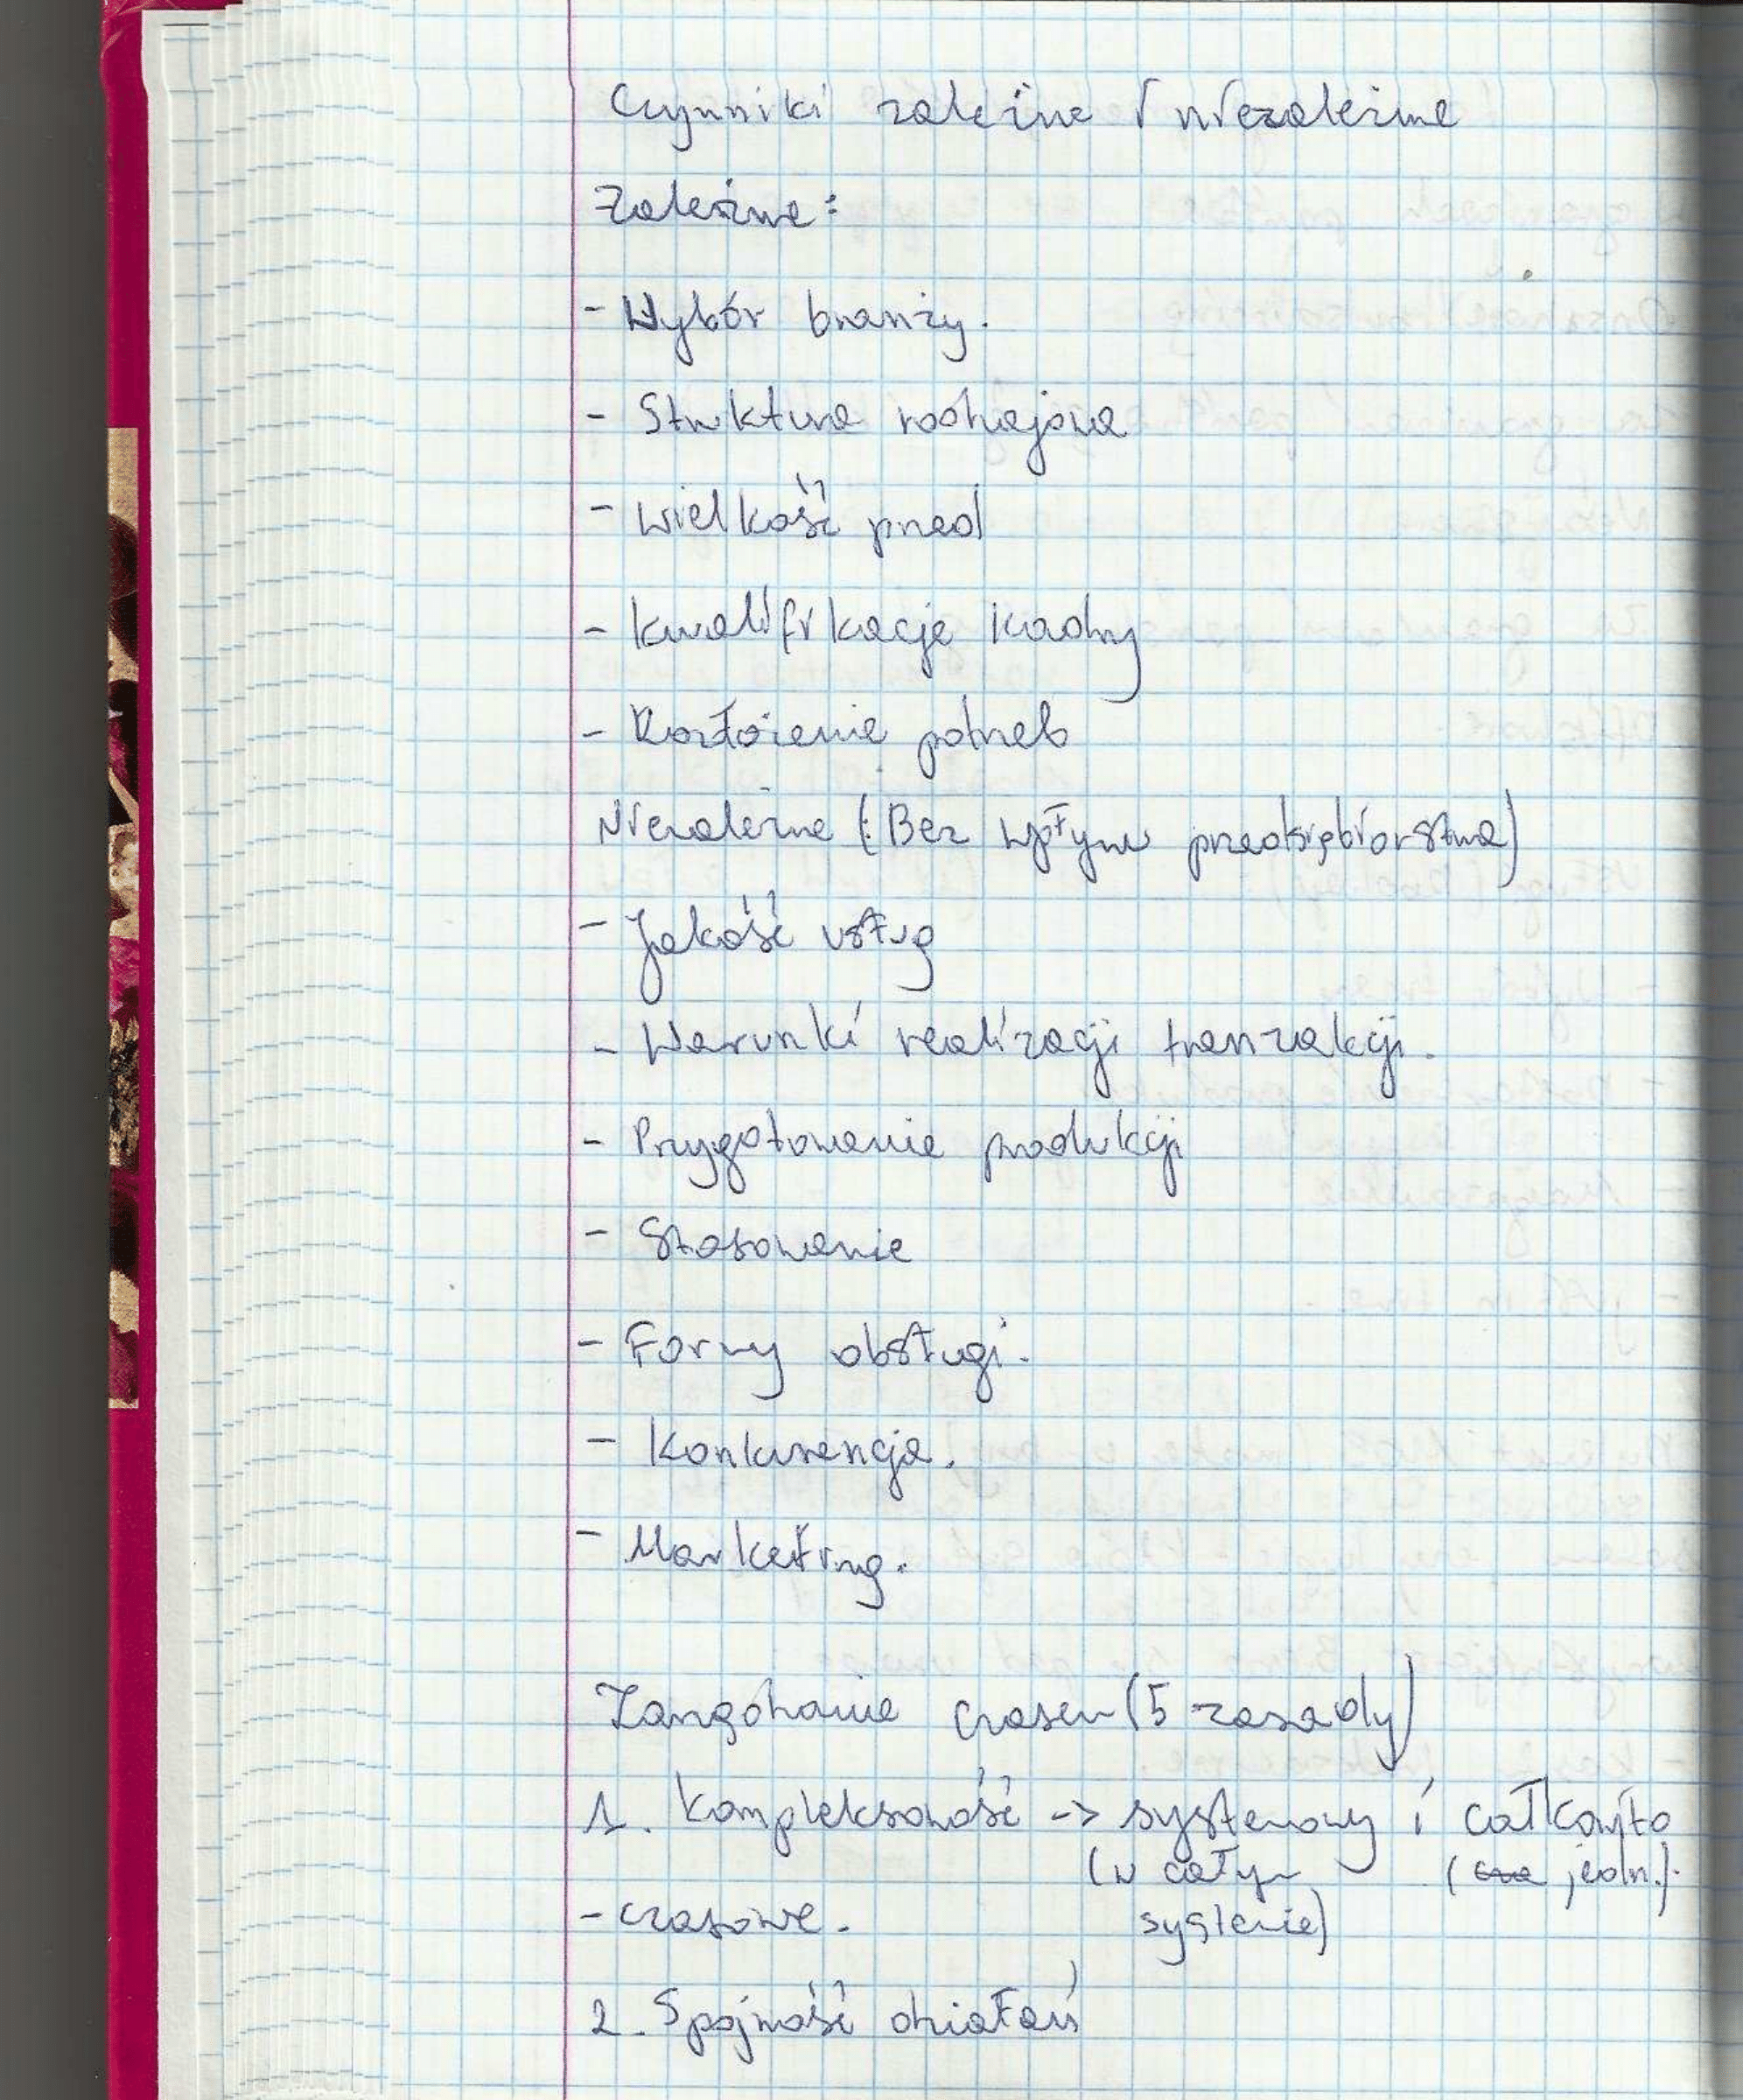 Czynniki zależne i niezależne
Zależne:
- Wybór branży.
- Struktura rodzajowa
- Wielkość przed
- Kwalifikacje kadry
- Rozłożenie potrzeb
Niezależne (: Bez wpływu przedsiębiorstwa)
- Jakość usług
- Warunki realizacji tranzakcji.
- Przygotowanie produkcji
- Stosowanie
- Formy obsługi.
- Konkurencja.
- Marketing.
Zarządzanie czasem (5 zasady)
1. Kompleksowość -> systemowy i całkowito
(w całym (jedn.).
- czasowe. systemie)
2. Spójność działań